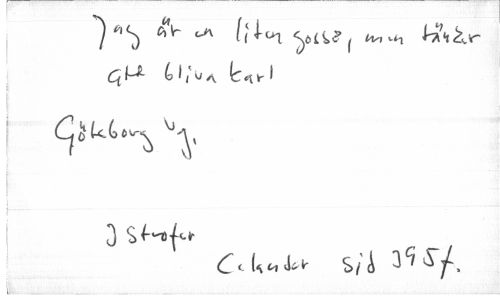 Jag är en liten gosse, men tänker
att bliva karl
Göteborg Vg.
3 strofer
Celander sid 395f.